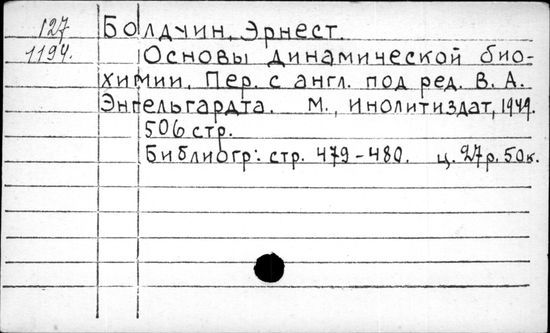 127 Болдчин, Эрнест.
1194. Основы динамической био-
химии. Пер. с англ. под ред. В. А.
Энгельгардта. М., Инолитиздат, 1949.
506 стр.
Библиогр: стр. 479-480. ц. 27 р. 50 к.